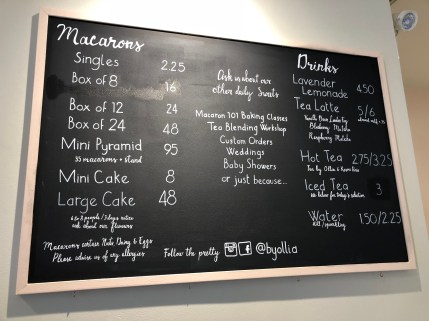 Macarons
Singles 2.25
Box of 8 16
Box of 12 24
Box of 24 48
Mini Pyramid 95
35 macarons + stand
Mini Cake 8
Large Cake 48
6 to 8 people / 3 days notice
ask about our flavours
Macarons contain Nuts, Dairy & Eggs
Please advise us of any allergies
Ask us about our
other daily Sweets
Macaron 101 Baking Classes
Tea Blending Workshop
Custom Orders
Weddings
Baby Showers
or just because...
Follow the pretty @byollia
Drinks
Lavender
Lemonade 4.50
Tea Latte 5/6
Vanilla Bean
Blueberry Matcha
Raspberry Matcha
Hot Tea 2.75/3.25
Tea by Ollia
Iced Tea 3
see below for today's selection
Water 1.50/2.25
still/sparkling